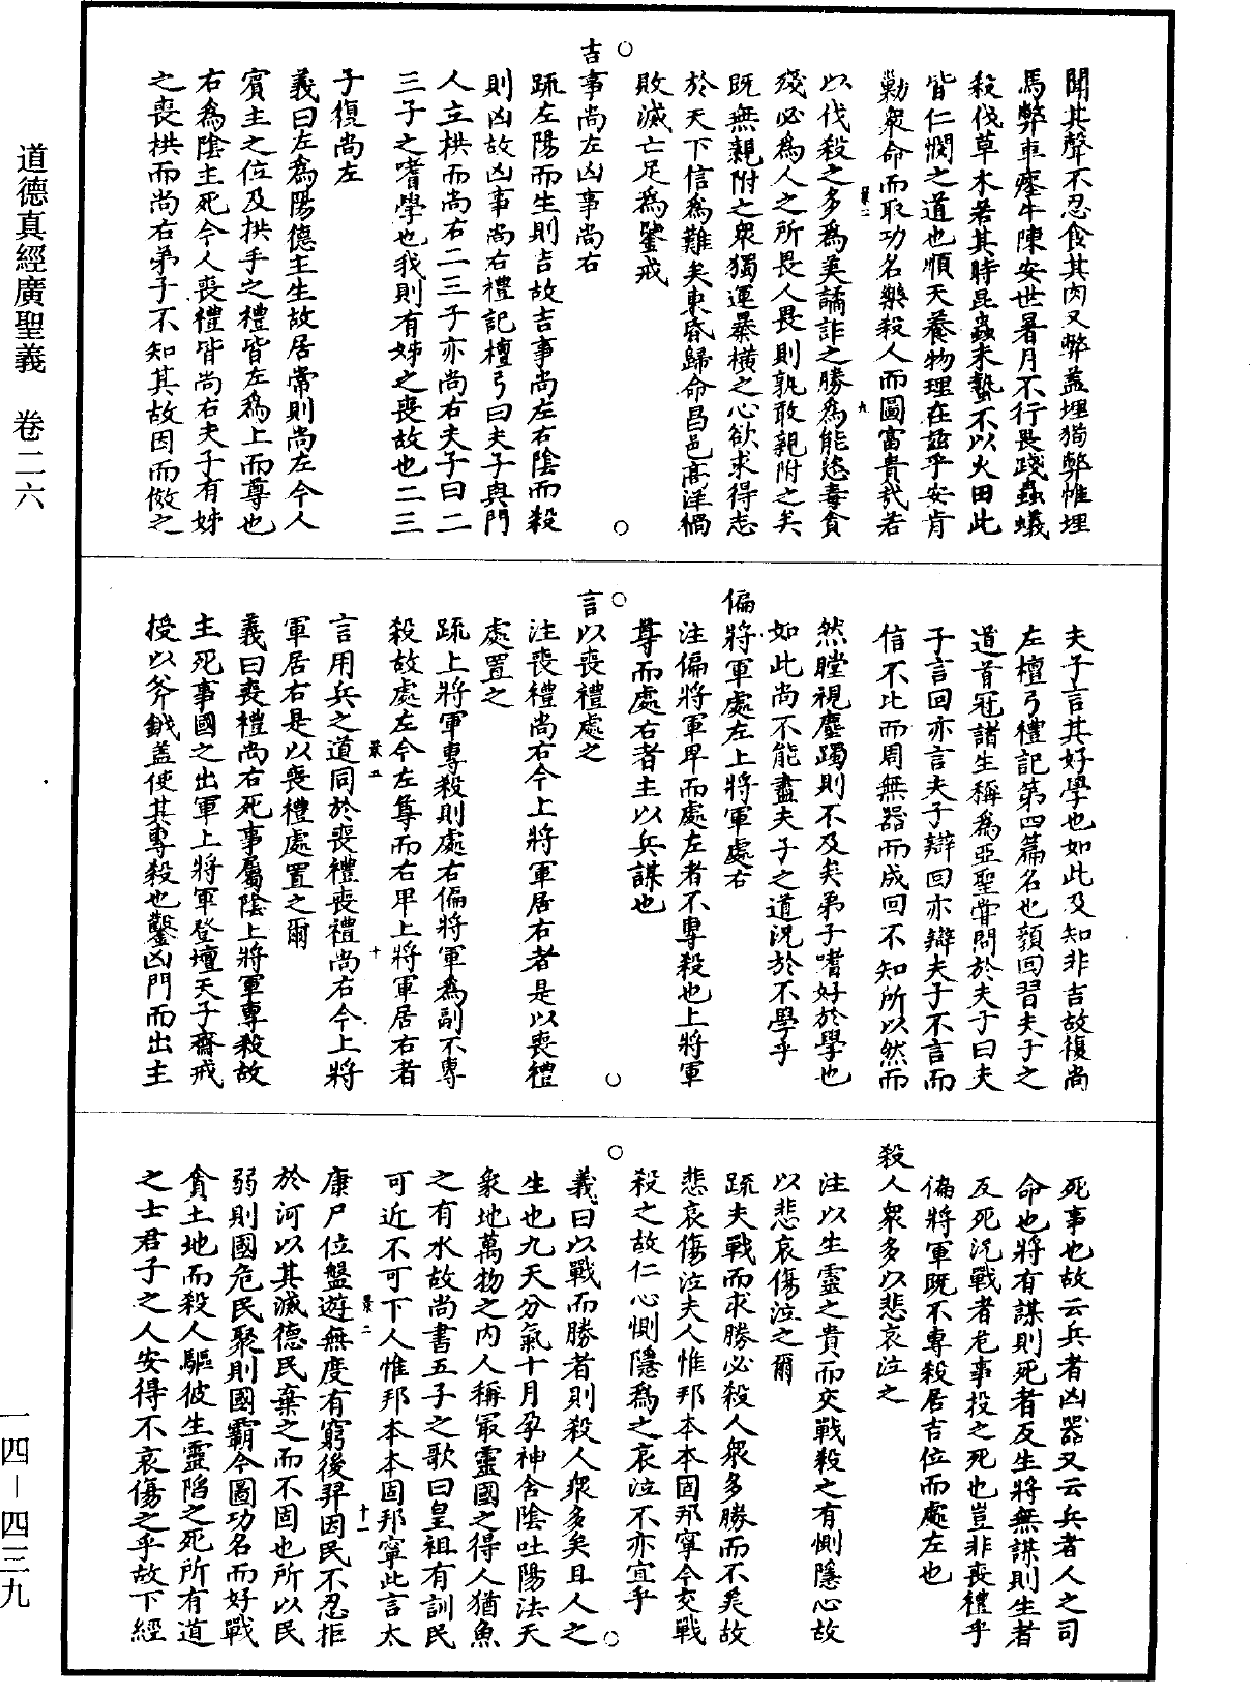 道德真經廣聖義　卷二六
聞其聲不忍食其肉又弊蓋埋狗弊帷埋
馬弊車瘞牛陳安世暑月不行畏踐蟲蟻
殺伐草木若其時昆蟲未蟄不以火田此
皆仁憫之道也順天養物理在茲乎安肯
勦衆命而取功名樂殺人而圖富貴哉若
以伐殺之多爲美譎詐之勝爲能恣毒貪
殘必爲人之所畏人畏則孰敢親附之矣
既無親附之衆獨運暴橫之心欲求得志
於天下信爲難矣東昏歸命昌邑高洋禍
敗滅亡足爲鑒戒
吉事尚左凶事尚右
疏左陽而生則吉故吉事尚左右陰而殺
則凶故凶事尚右禮記檀弓曰夫子與門
人立拱而尚右二三子亦尚右夫子曰二
三子之嗜學也我則有姊之喪故也二三
子復尚左
義曰左爲陽德主生故居常則尚左今人
賓主之位及拱手之禮皆左爲上而尊也
右爲陰主死今人喪禮皆尚右夫子有姊
之喪拱而尚右弟子不知其故因而倣之
夫子言其好學也如此及知非吉故復尚
左檀弓禮記第四篇名也顏回習夫子之
道首冠諸生稱爲亞聖常問於夫子曰夫
子言回亦言夫子辯回亦辯夫子不言而
信不比而周無器而成回不知所以然而
然瞠視塵躅則不及矣弟子嗜好於學也
如此尚不能盡夫子之道況於不學乎
偏將軍處左上將軍處右
注偏將軍卑而處左者不專殺也上將軍
尊而處右者主以兵謀也
言以喪禮處之
注喪禮尚右今上將軍居右者是以喪禮
處置之
疏上將軍專殺則處右偏將軍爲副不專
殺故處左今左尊而右卑上將軍居右者
言用兵之道同於喪禮喪禮尚右今上將
軍居右是以喪禮處置之爾
義曰喪禮尚右死事屬陰上將軍專殺故
主死事國之出軍上將軍登壇天子齋戒
授以斧鉞蓋使其專殺也鑿凶門而出主
死事也故云兵者凶器又云兵者人之司
命也將有謀則死者反生將無謀則生者
反死況戰者危事投之死也豈非喪禮乎
偏將軍既不專殺居吉位而處左也
殺人衆多以悲哀泣之
注以生靈之貴而交戰殺之有惻隱心故
以悲哀傷泣之爾
疏夫戰而求勝必殺人衆多勝而不美故
悲哀傷泣夫人惟邦本本固邦寧今交戰
殺之故仁心惻隱爲之哀泣不亦宜乎
義曰以戰而勝者則殺人衆多矣且人之
生也九天分氣十月孕神含陰吐陽法天
象地萬物之內人稱最靈國之得人猶魚
之有水故尚書五子之歌曰皇祖有訓民
可近不可下人惟邦本本固邦寧此言太
康尸位盤遊無度有窮后羿因民不忍拒
於河以其滅德民棄之而不固也所以民
弱則國危民聚則國霸今圖功名而好戰
貪土地而殺人驅彼生靈陷之死所有道
之士君子之人安得不哀傷之乎故下經
一四－四三九